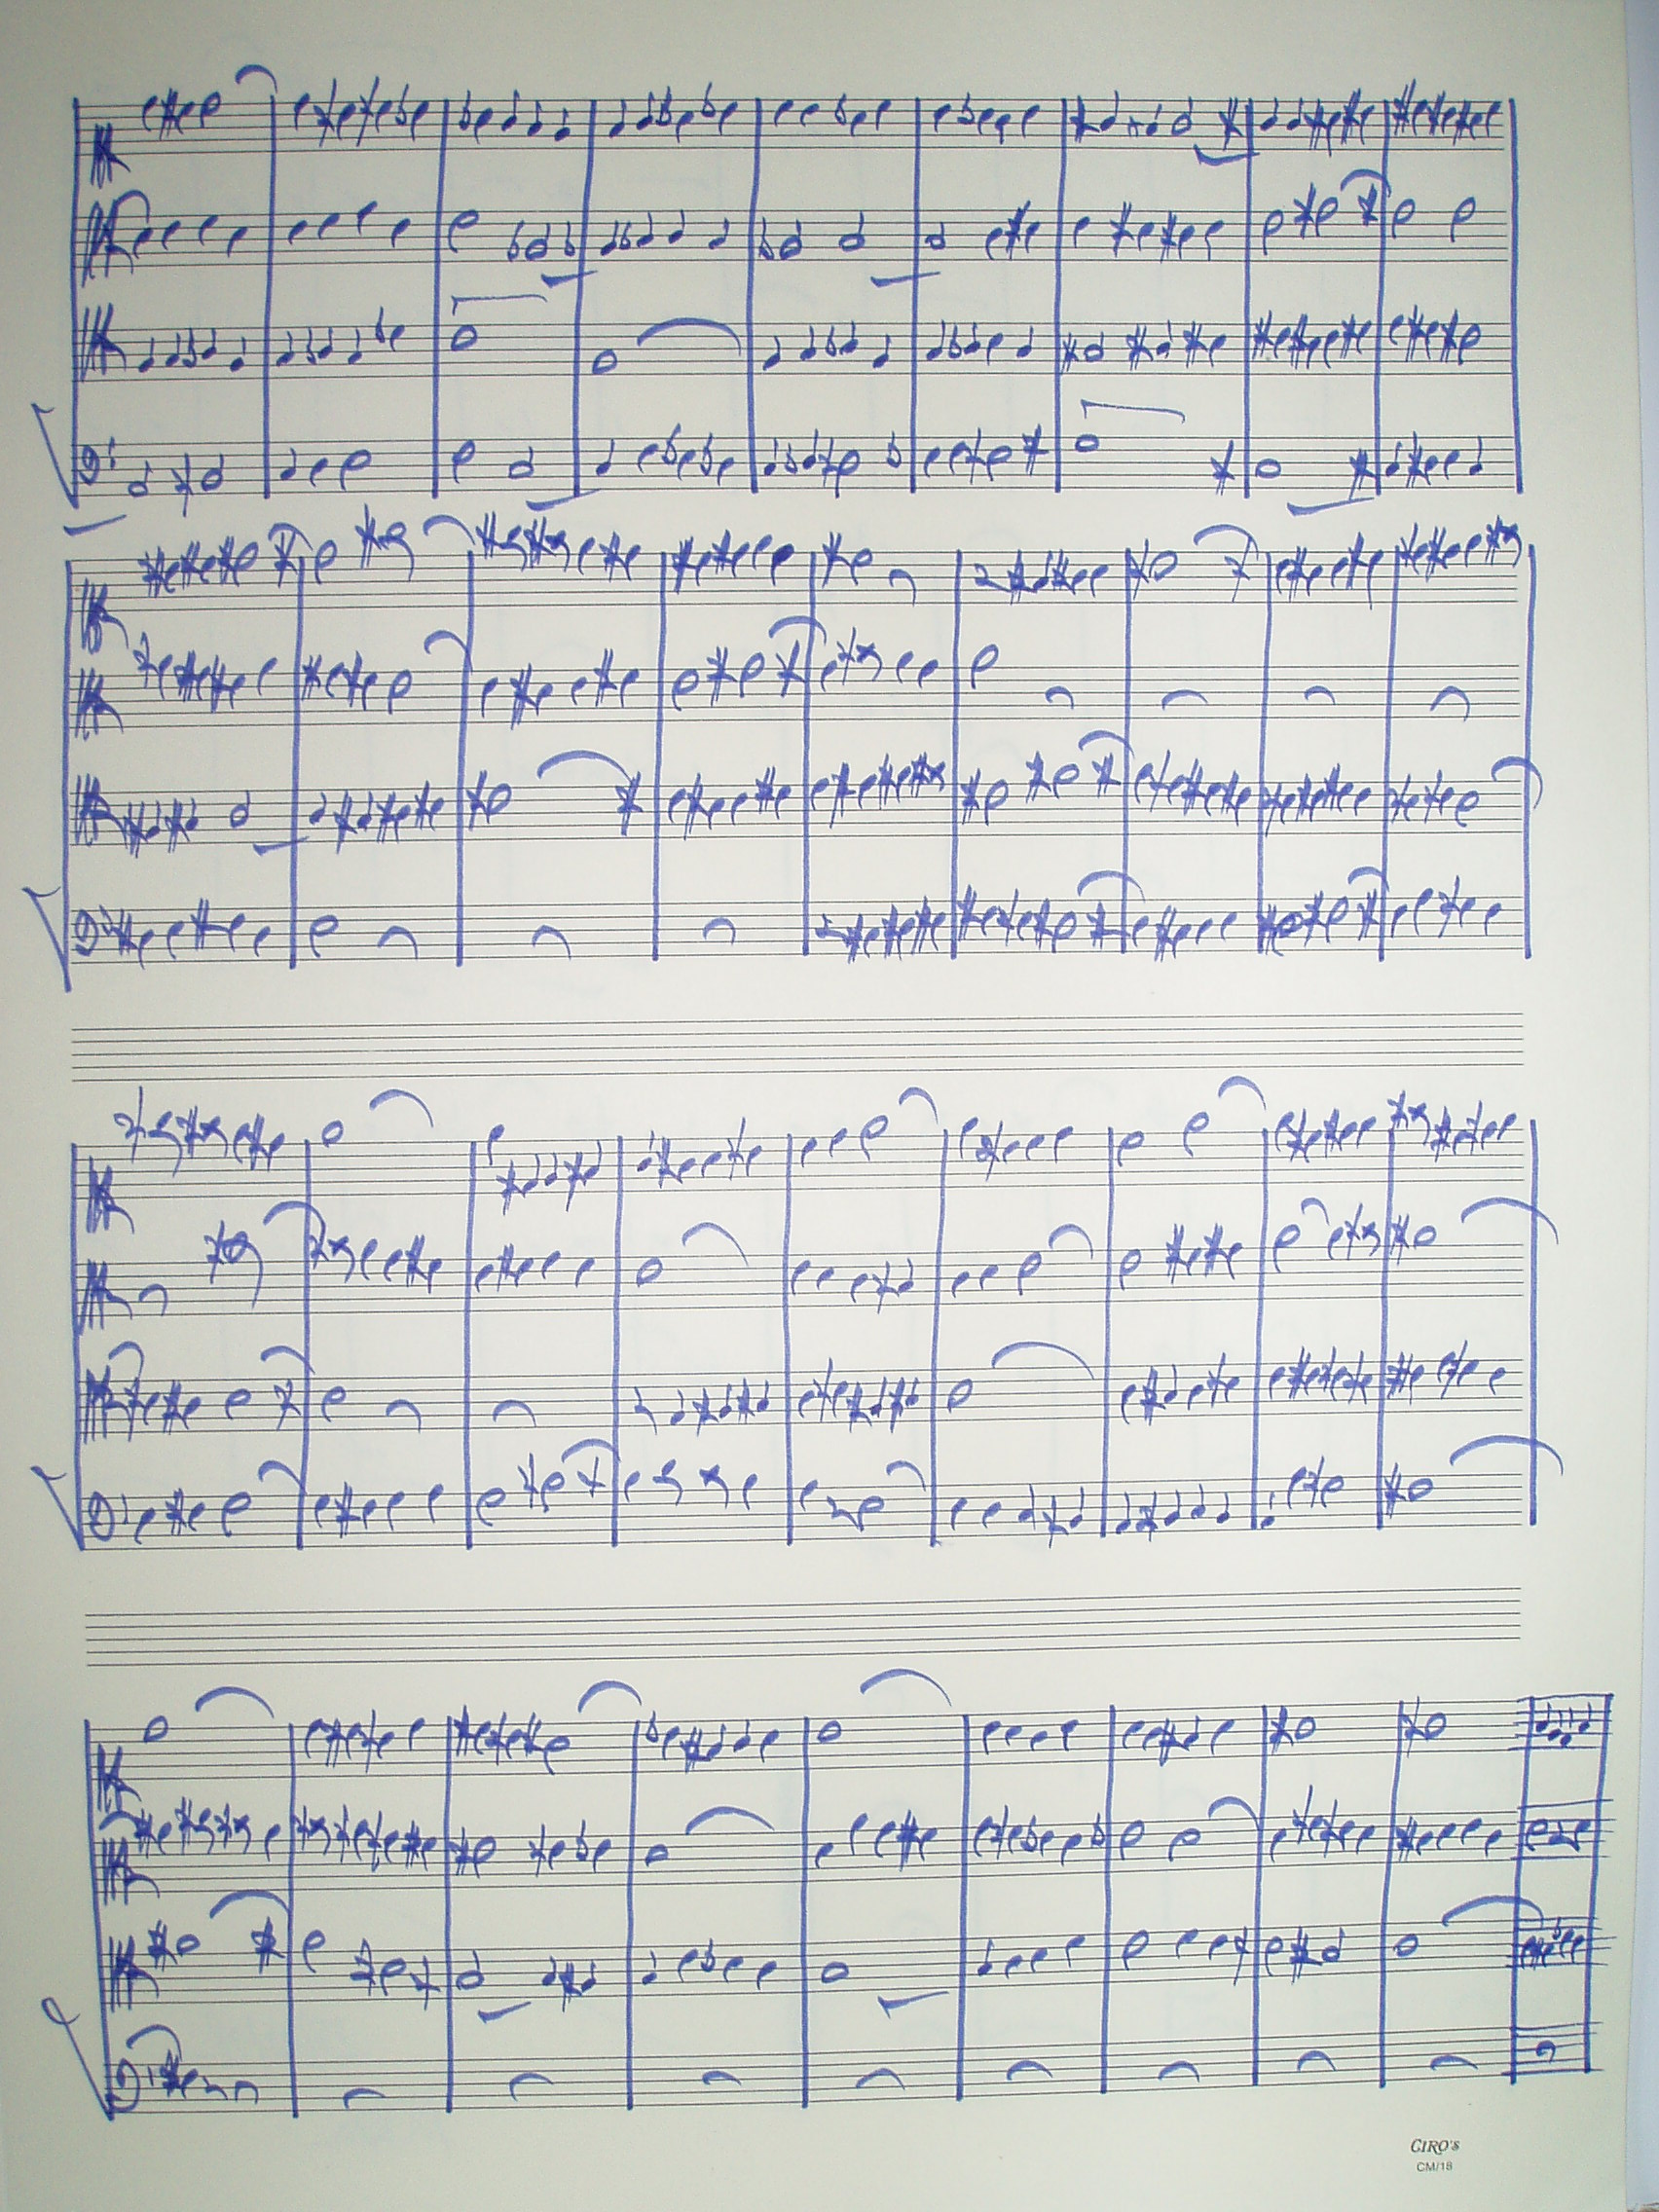 CIRO'S
CM/18